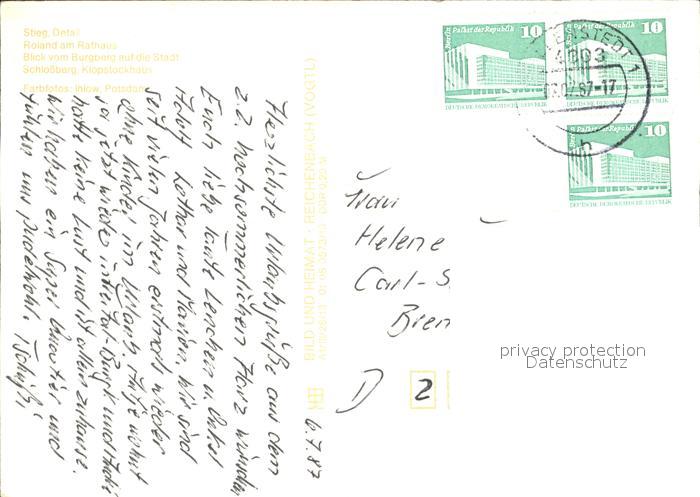 Stieg, Detail
Roland am Rathaus
Blick vom Burgberg auf die Stadt
Schloßberg, Klopstockhaus
Farbfotos: Ihlow, Potsdam
Herzlichste Urlaubsgrüße aus dem
z.Z. hochsommerlichen Harz wünschen
Euch liebe Tante Lenchen u. Onkel
Lothar und wir sind
seit vielen Jahren erstmals wieder
ohne Kinder im Urlaub.
ja jetzt wieder in und
hatte keine Lust und ist allein zuhause.
Wir haben ein Super Quartier und
fühlen uns pudelwohl. Tschüß,
BILD UND HEIMAT · REICHENBACH (VOGTL)
6.7.87
Berlin Palast der Republik 10
DEUTSCHE DEMOKRATISCHE REPUBLIK
Berlin Palast der Republik 10
DEUTSCHE DEMOKRATISCHE REPUBLIK
Berlin Palast der Republik 10
DEUTSCHE DEMOKRATISCHE REPUBLIK
87-17
Frau
Helene
Carl-S
Brem
D 2
privacy protection
Datenschutz